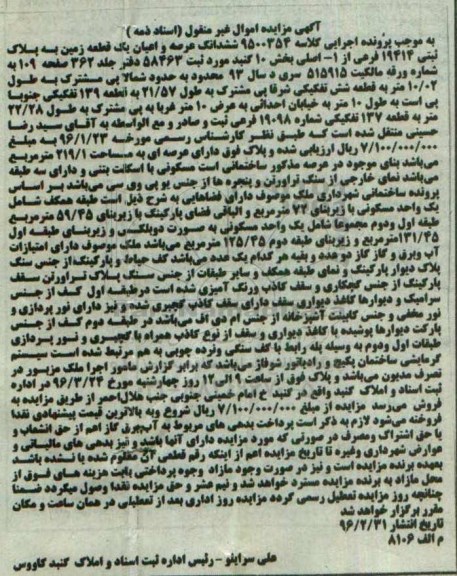 آگهی مزایده اموال غیر منقول (اسناد ذمه)
به موجب پرونده اجرایی کلاسه ۹۵۰۰۳۵۴ ششدانگ عرصه و اعیان یک قطعه زمین به پلاک
ثبتی ۱۹۴۱۴ فرعی از ۱- اصلی بخش ۱۰ گنبد مورد ثبت ۵۸۴۶۳ دفتر جلد ۳۶۲ صفحه ۱۰۹ به
شماره ورقه مالکیت ۵۱۵۹۱۵ سری د سال ۹۳ محدود به حدود شمالا پی مشترک به طول
۱۰/۰۲ متر به قطعه شش تفکیکی شرقا پی مشترک به طول ۲۱/۵۷ به قطعه ۱۳۹ تفکیکی جنوبا
پی است به طول ۱۰ متر به خیابان احداثی به عرض ۱۰ متر غربا به پی مشترک به طول ۲۲/۲۸
متر به قطعه ۱۳۷ تفکیکی شماره ۱۹۰۹۸ فرعی ثبت و صادر و مع الواسطه به آقای سید رضا
حسینی منتقل شده است که طبق نظر کارشناس رسمی مورخه ۹۶/۱/۲۳ به مبلغ
۷/۱۰۰/۰۰۰/۰۰۰ ریال ارزیابی شده و پلاک فوق دارای عرصه ای به مساحت ۲۱۹/۱ مترمربع
می‌باشد بنای موجود در عرصه مذکور ساختمانی است مسکونی با اسکلت بتنی و دارای سه طبقه
می‌باشد نمای خارجی از سنگ تراورتن و پنجره ها از جنس یو پی وی سی می‌باشد بر اساس
پرونده ساختمانی شهرداری ملک موصوف دارای فضاهایی به شرح ذیل است طبقه همکف شامل
یک واحد مسکونی با زیربنای ۷۲ مترمربع و الباقی فضای پارکینگ با زیربنای ۵۹/۴۵ مترمربع
طبقه اول ودوم مجموعا شامل یک واحد مسکونی به صورت دوبلکس و زیربنای طبقه اول
۱۳۱/۴۵مترمربع و زیربنای طبقه دوم ۱۲۵/۴۵ مترمربع می‌باشد ملک موصوف دارای امتیازات
آب وبرق و گاز گاز دو عدد و بقیه هر کدام یک عدد می‌باشد کف حیاط و پارکینگ از جنس سنگ
پلاک دیوار پارکینگ و نمای طبقه همکف و سایر طبقات از جنس سنگ پلاک تراورتن سقف
پارکینگ از جنس گچکاری و سقف کاذب ورنگ آمیزی شده است درطبقه اول کف از جنس
سرامیک و دیوارها کاغذ دیواری سقف دارای سقف کاذب گچبری شده و نیز دارای نور پردازی و
نور مخفی و جنس کابینت آشپزخانه از جنس ام دی اف می‌باشد در طبقه دوم کف از جنس
پارکت دیوارها پوشیده با کاغذ دیواری و سقف از نوع کاذب همراه با گچبری و نور پردازی
طبقات اول ودوم به وسیله پله رابط با کف سنگی ونرده چوبی به هم مرتبط شده است سیستم
گرمایشی ساختمان پکیج و رادیاتور شوفاژ می‌باشد که برابر گزارش مامور اجرا ملک مزبور در
تصرف مدیون می‌باشد و پلاک فوق از ساعت ۹ الی۱۲ روز چهارشنبه مورخ ۹۶/۳/۲۴ در اداره
ثبت اسناد و املاک گنبد واقع در گنبد خ امام خمینی جنوبی جنب هلال‌احمر از طریق مزایده به
فروش می‌رسد مزایده از مبلغ ۷/۱۰۰/۰۰۰/۰۰۰ ریال شروع وبه بالاترین قیمت پیشنهادی نقدا
فروخته می‌شود لازم به ذکر است پرداخت بدهی های مربوط به آب‌برق گاز اعم از حق انشعاب و
یا حق اشتراک ومصرف در صورتی که مورد مزایده دارای آنها باشد و نیز بدهی های مالیاتی و
عوارض شهرداری وغیره تا تاریخ مزایده اعم از اینکه رقم قطعی آن معلوم شده یا نشده باشد
بعهده برنده مزایده است و نیز در صورت وجود مازاد وجوه پرداختی بابت هزینه های فوق از
محل مازاد به برنده مزایده مسترد خواهد شد و نیم عشر و حق مزایده نقدا وصول میگردد ضمنا
چنانچه روز مزایده تعطیل رسمی گردد مزایده روز اداری بعد از تعطیلی در همان ساعت و مکان
مقرر برگزار خواهد شد
تاریخ انتشار ۹۶/۲/۳۱
م الف ۸۱۰۶
علی سرایلو - رئیس اداره ثبت اسناد و املاک گنبد کاووس